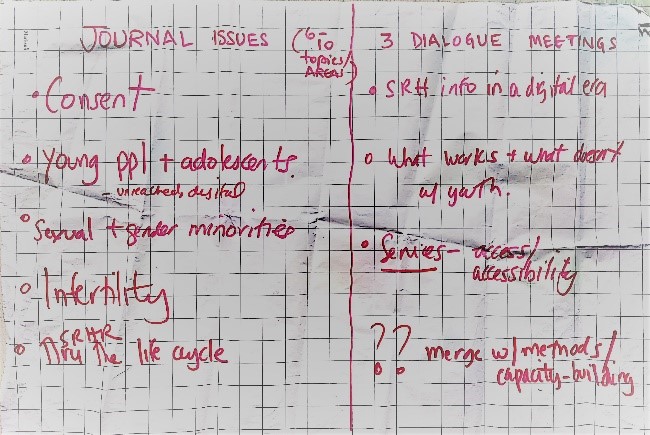 JOURNAL ISSUES (6-10
topics/
AREAS)
• Consent
• Young ppl + adolescents.
- unreached, digital
• Sexual + gender minorities
• Infertility
• SRHR
Thru the life cycle
3 DIALOGUE MEETINGS
• SRH info in a digital era
• What works + what doesn't
w/ youth.
• Services - access/
accessibility
?? merge w/ methods/
capacity-building